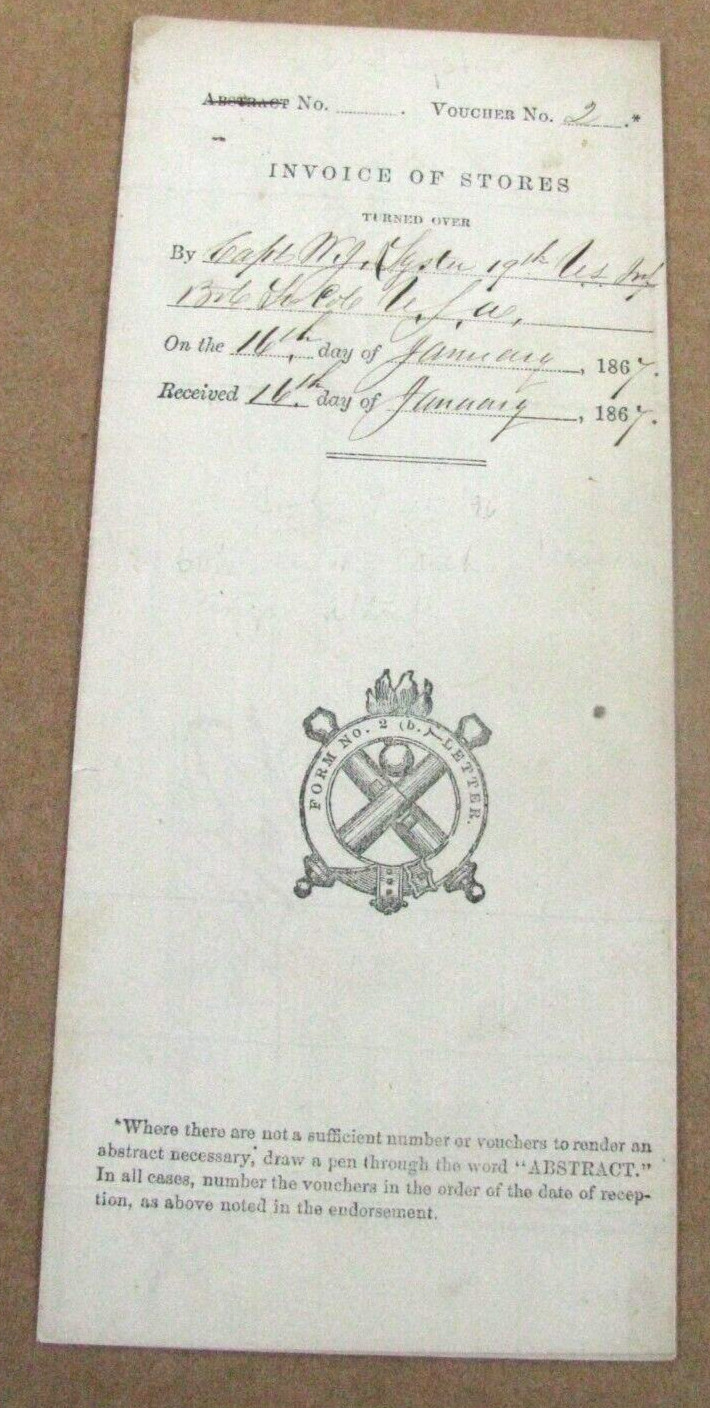 ABSTRACT No. ......... . VOUCHER No. 2 .*
INVOICE OF STORES
TURNED OVER
By Capt W.J. Lyster 19th U.S. Inf
Bvt Lt Col U.S.A.
On the 16th day of January, 1867.
Received 16th day of January, 1867.
FORM NO. 2 (b.)—LETTER.
*Where there are not a sufficient number or vouchers to render an
abstract necessary, draw a pen through the word "ABSTRACT."
In all cases, number the vouchers in the order of the date of recep-
tion, as above noted in the endorsement.